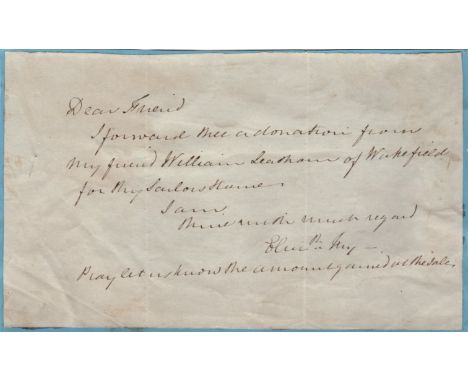 Dear Friend
I forward thee a donation from
my friend William Leatham of Wakefield
for thy Sailors Home.
I am
thine with much regard
Eliz.th Fry
Pray let us know the amount gained at the Sale.